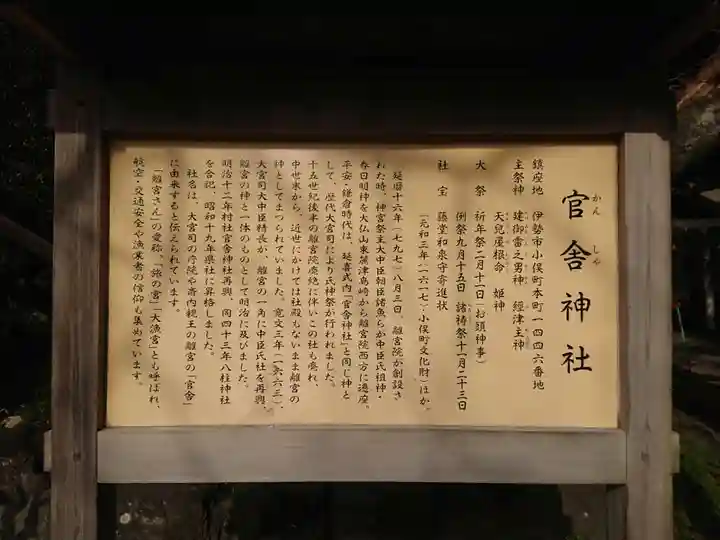 官舎神社
かんしゃ
鎮座地 伊勢市小俣町本町一四四六番地
主祭神 建御雷之男神 經津主神
天兒屋根命 姫神
大祭 祈年祭二月十一日(お頭神事)
例祭九月十五日 諸祷祭十一月二十三日
社宝 藤堂和泉守寄進状
(元和三年(一六一七)・小俣町文化財)ほか。
延暦十六年(七九七)八月三日、離宮院が創設さ
れた時、神宮祭主大中臣朝臣諸魚らが中臣氏祖神・
春日明神を大仏山東麓津島崎から離宮院西方に遷座、
平安・鎌倉時代は、延喜式内「官舎神社」と同じ神と
して、歴代大宮司により氏神祭が行われました。
十五世紀後半の離宮院廃絶に伴いこの社も廃れ、
中世末から、近世にかけては社殿もないまま離宮の
神としてまつられていました。寛文三年(一六六三)、
大宮司大中臣精長が、離宮の一角に中臣氏社を再興、
離宮の神と一体のものとして明治に及びました。
明治十二年村社官舎神社再興、同四十三年八柱神社
を合祀、昭和十九年県社に昇格しました。
社名は、大宮司の庁院や斎内親王の離宮の「官舎」
に由来すると伝えられています。
「離宮さん」の愛称、「旅の宮」「大漁宮」とも呼ばれ、
航空・交通安全や漁業者の信仰も集めています。